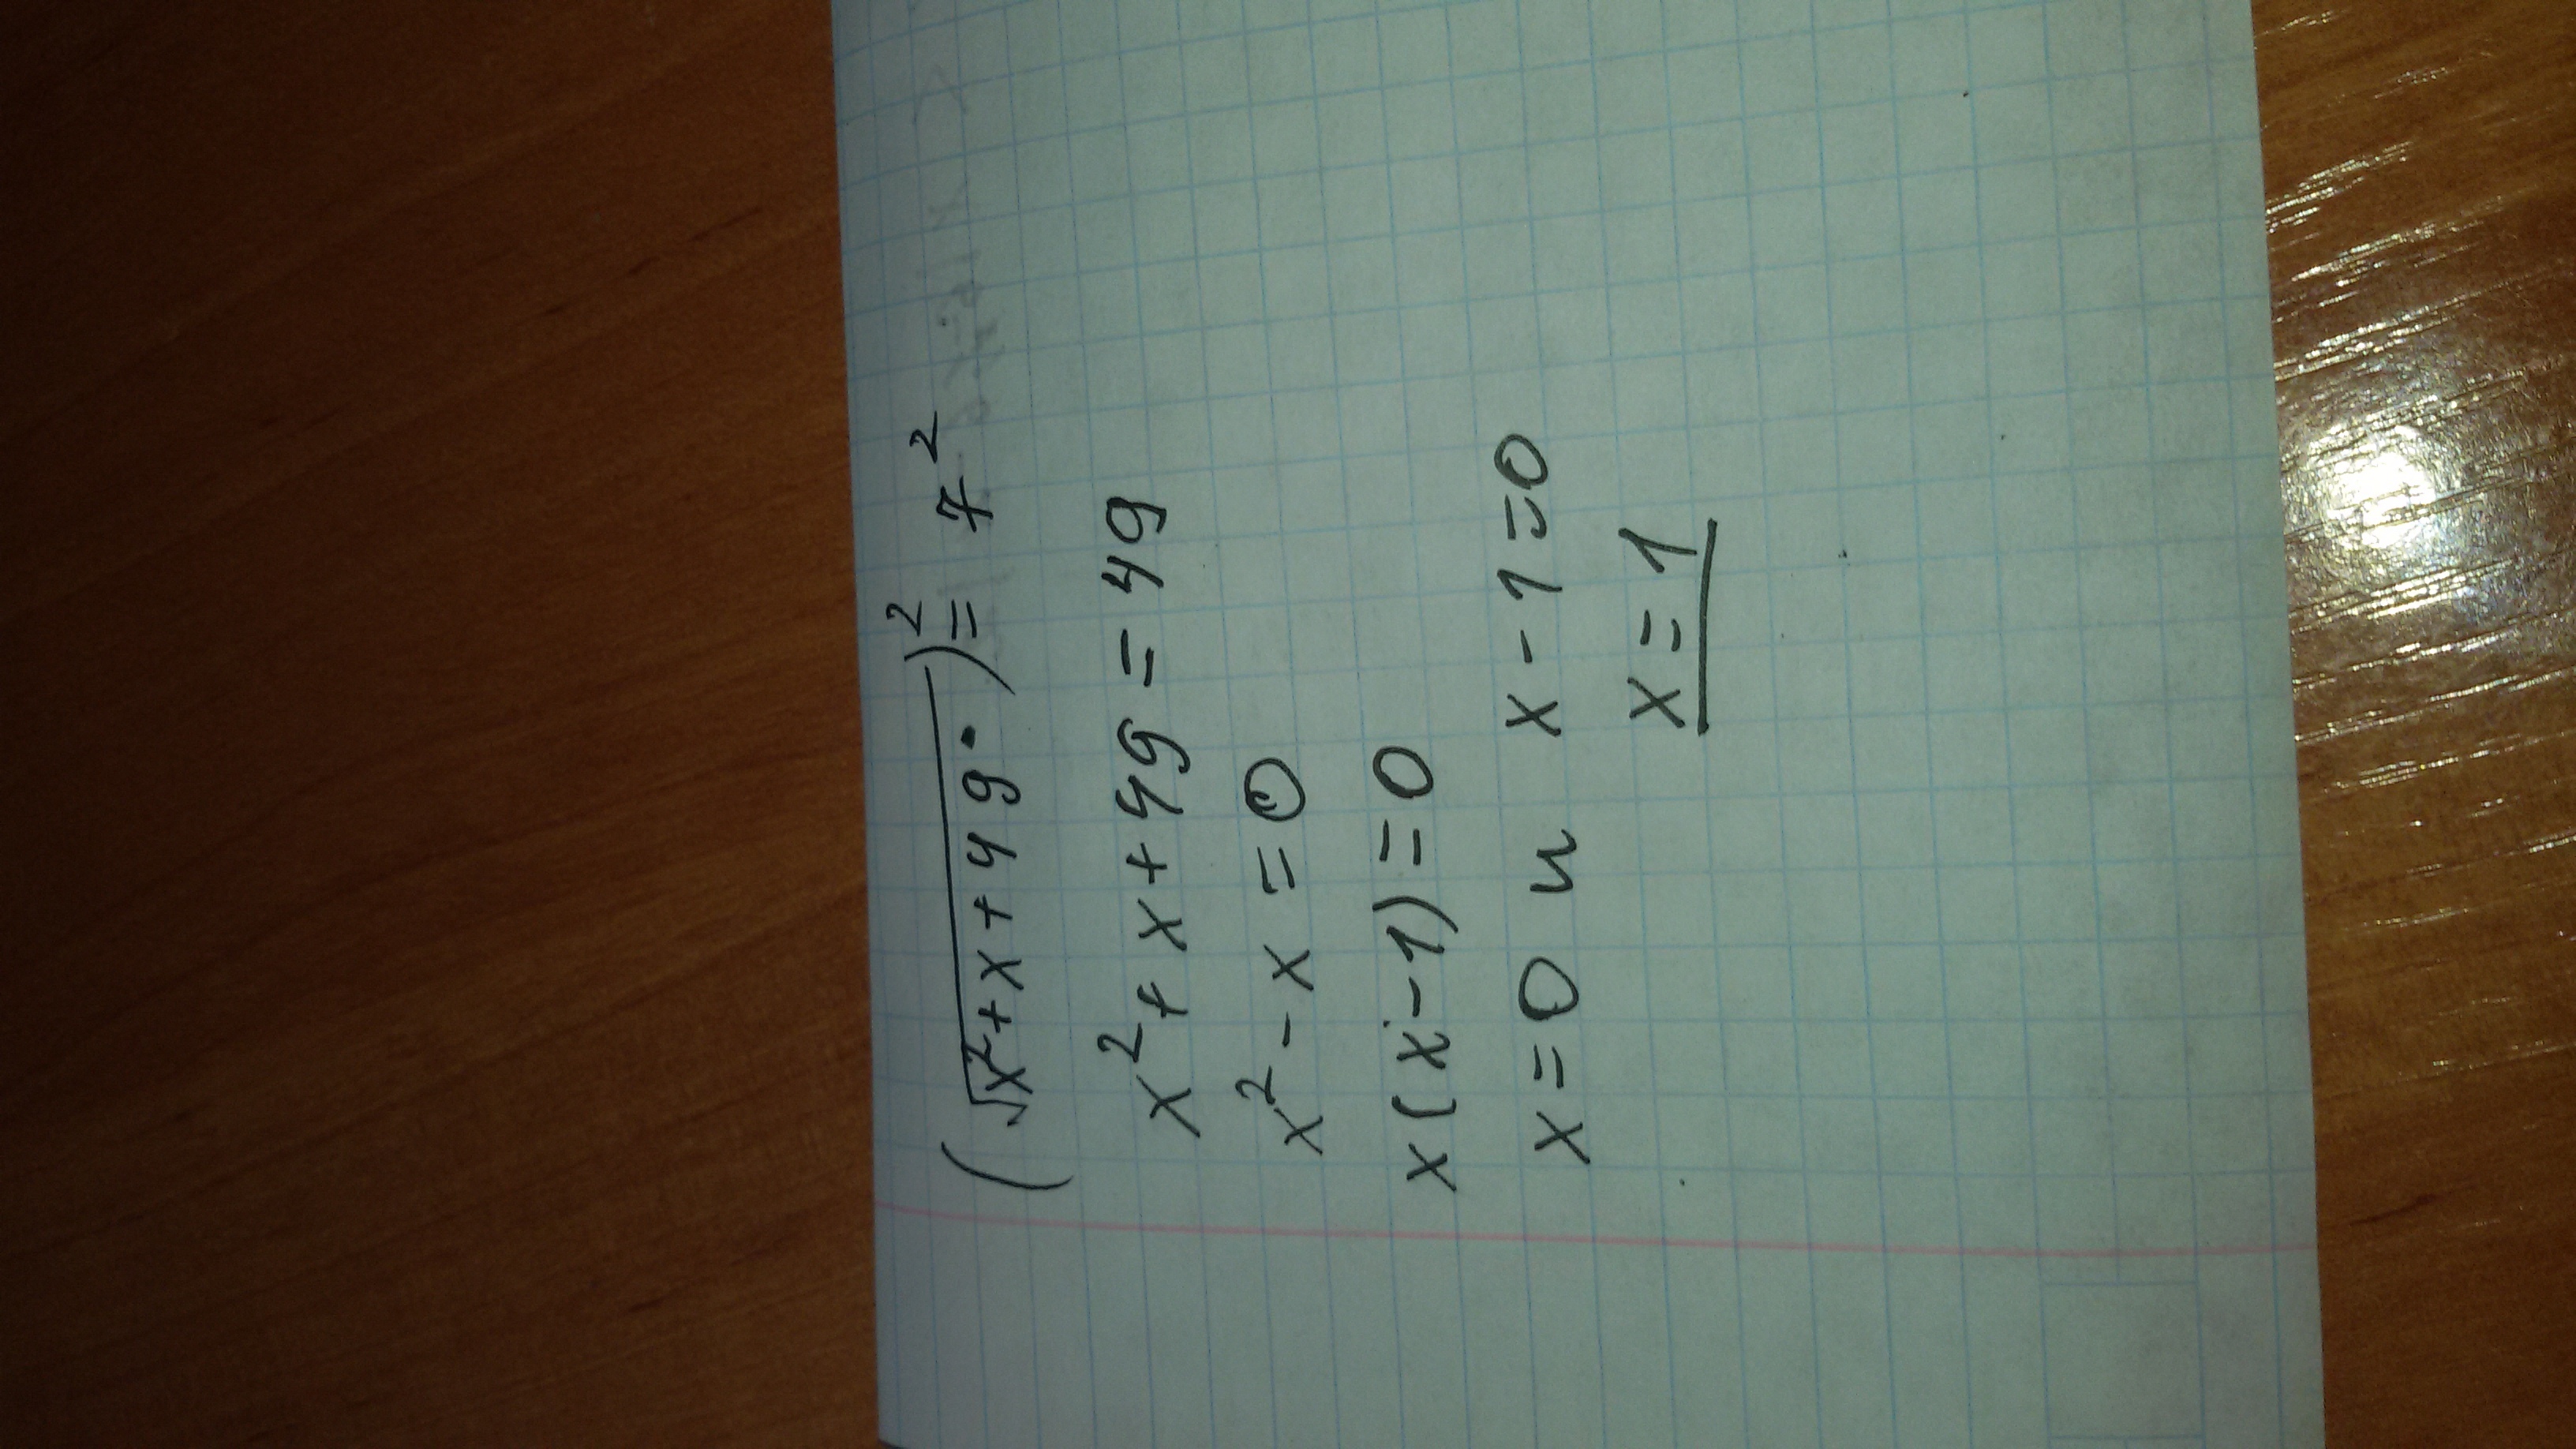 (√x²+x+49)² = 7²
x²+x+49 = 49
x²-x=0
x(x-1)=0
x=0 и x-1=0
x=1